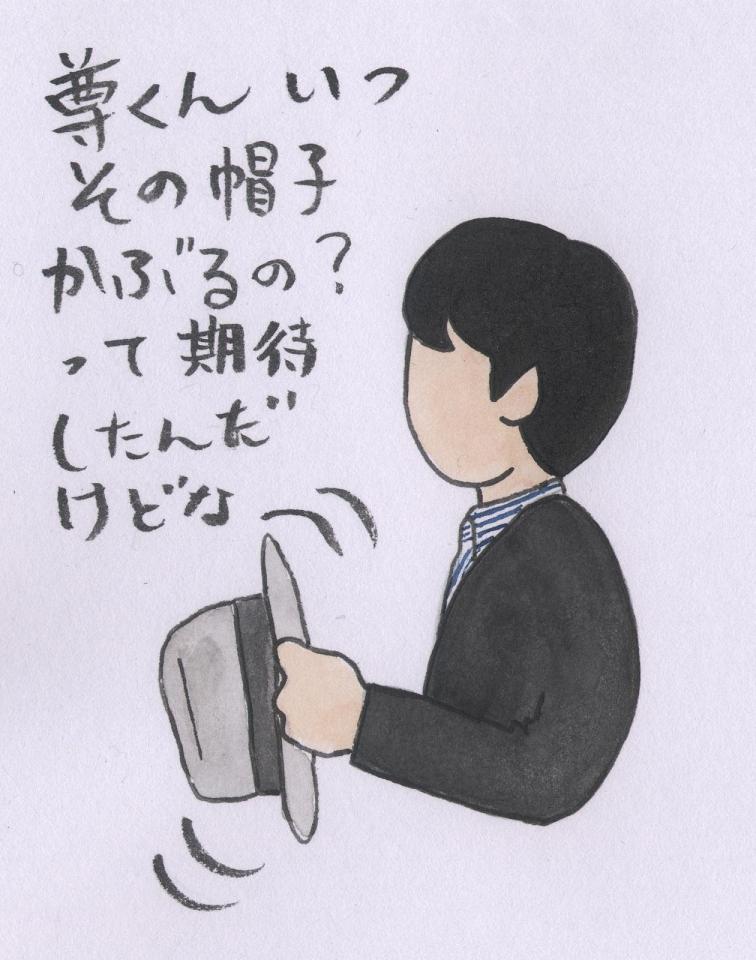 尊くん いつ
その帽子
かぶるの?
って期待
したんだ
けどな